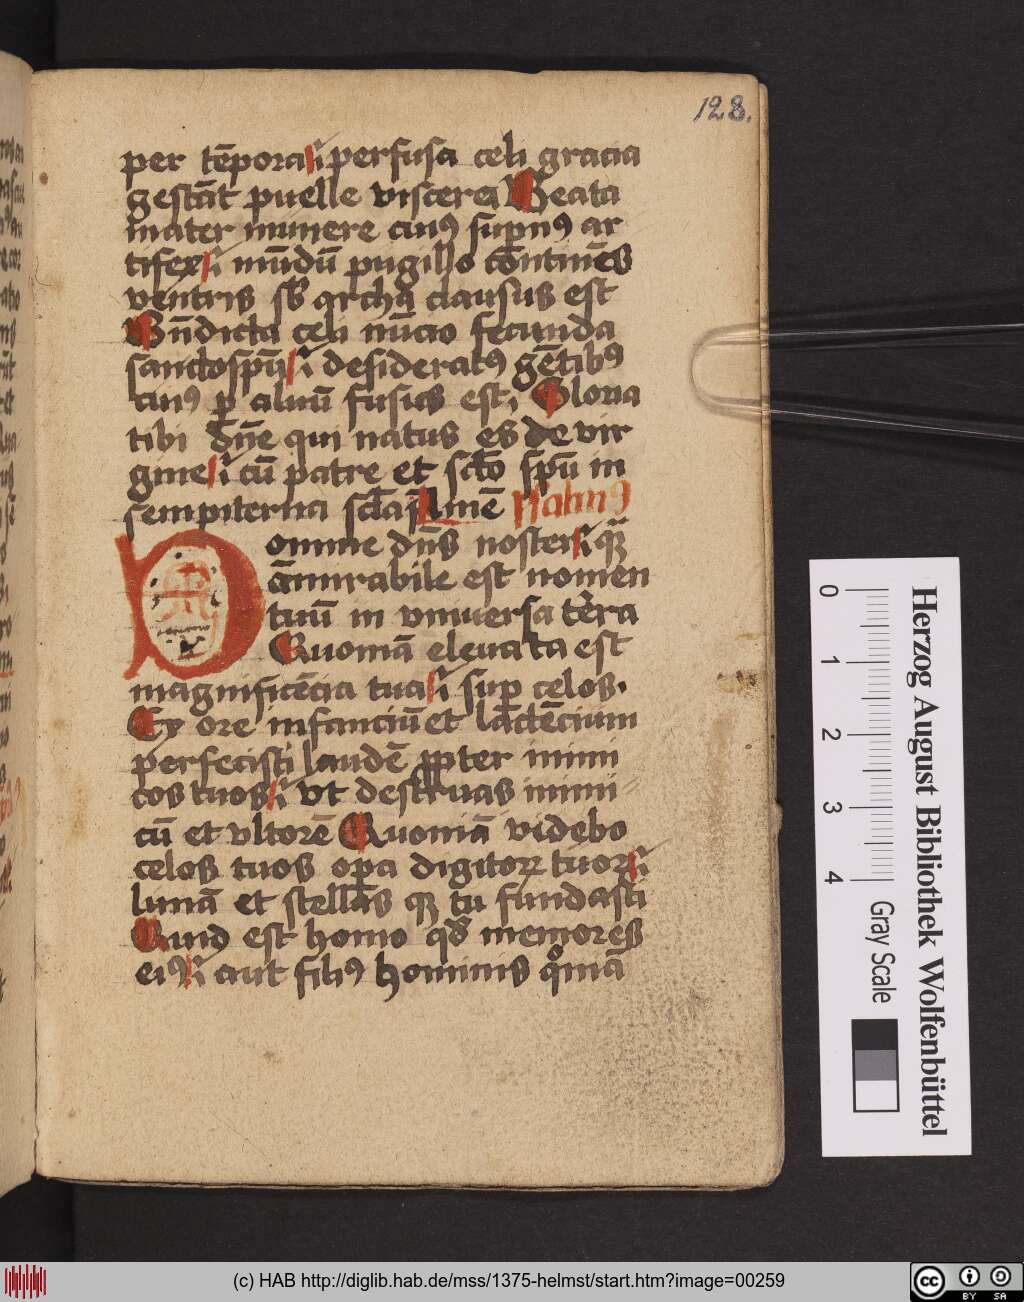 128.
per tēpora ı perfusa celi gracia
gestāt puelle viscera Beata
mater munere cuiꝰ sup̄nꝰ ar
tifex ı mūdū pugillo cōtinēs
ventris sb̄ archa clausus est
Bn̄dicta celi nūcio fecunda
sancto spū ı desideratꝰ gētibꝰ
cuiꝰ ꝑ aluū fusus est, Gloria
tibi dn̄e qui natus es de vir
gine ı cū patre et scō spū in
sempiterna scl̄a Amē psalmꝰ
Domine dn̄s noster ı qꝫ
āmirabile est nomen
tuū in vniuersa terra
Quoniā eleuata est
magnificēcia tua ı suꝑ celos.
Ex ore infanciū et lactēcium
perfecisti laudē ꝓpter inimi
cos tuos ı vt destruas inimi
cū et vltorē Quoniā videbo
celos tuos oꝑa digitoꝝ tuoꝝ ı
lunā et stellas qꝫ tu fundasti
Quid est homo qd̄ memores
eiꝰ ı aut filiꝰ hominis qm̄ā
Herzog August Bibliothek Wolfenbüttel
0 1 2 3 4
Gray Scale
(c) HAB http://diglib.hab.de/mss/1375-helmst/start.htm?image=00259
cc BY SA